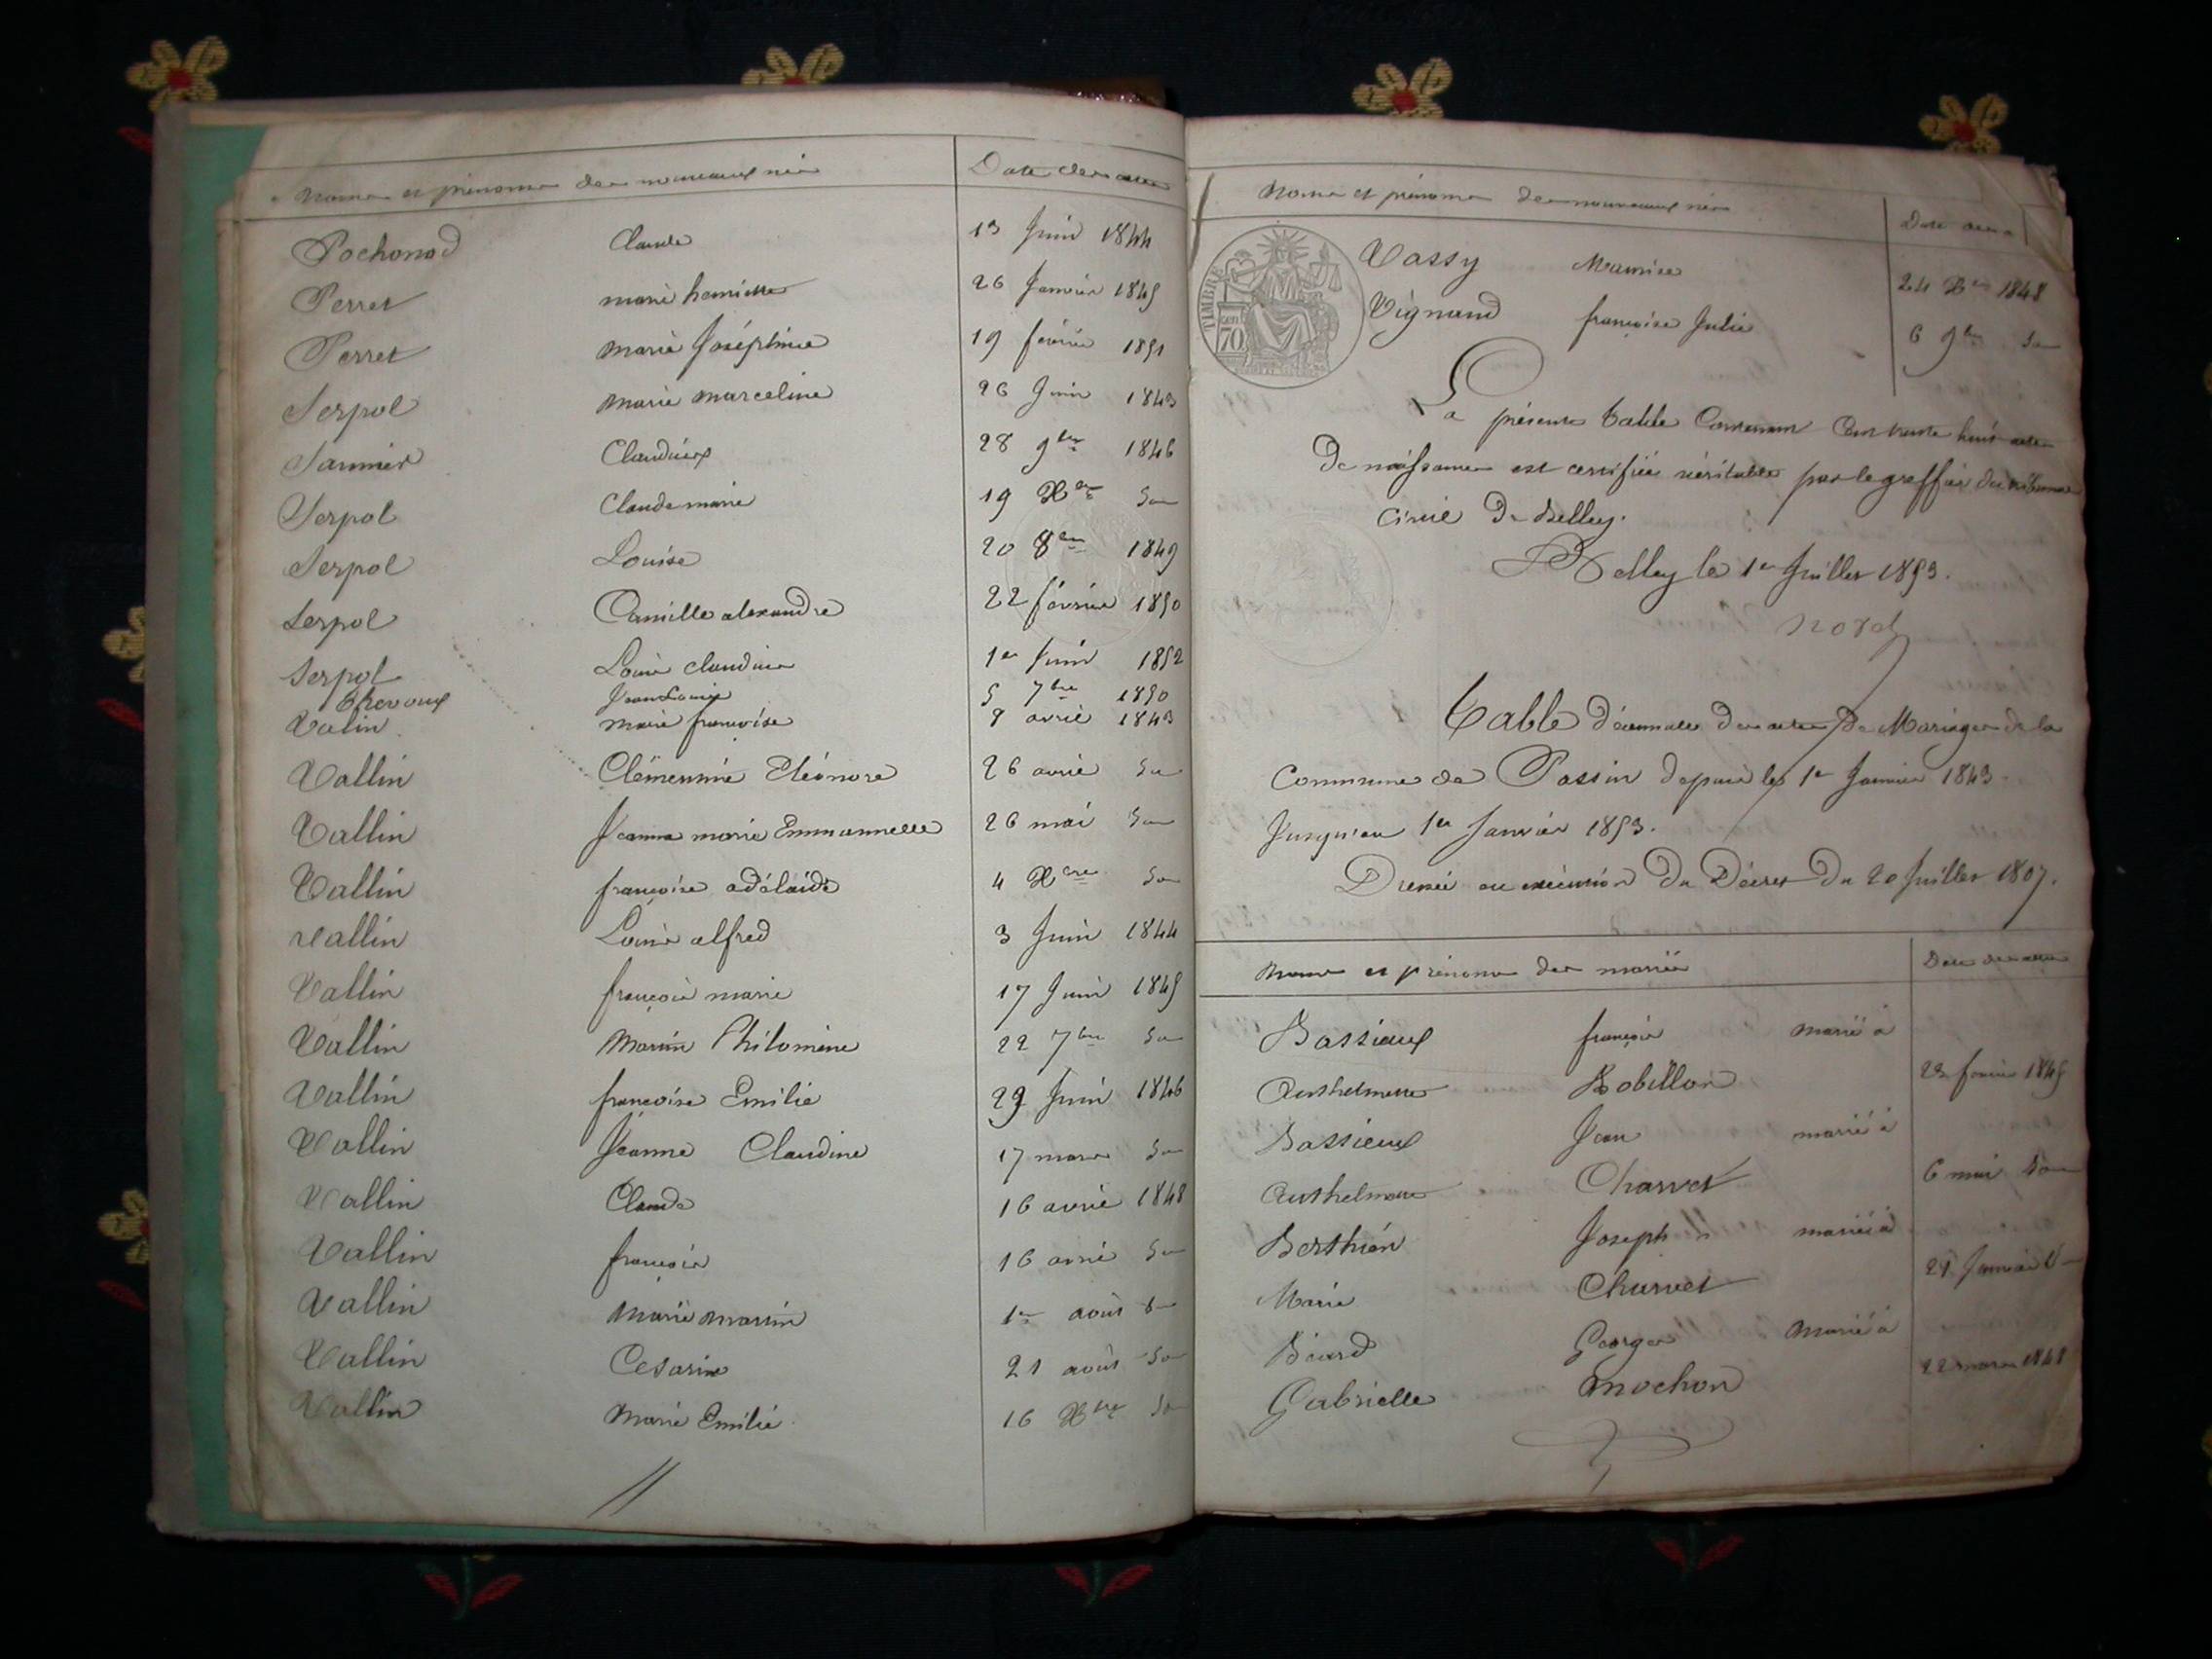 Noms et prénoms des nouveaux nés Date des actes
Pochonod Claude 13 Juin 1844
Perret marie henriette 26 Janvier 1845
Perret marie Joséphine 19 février 1851
Serpol marie marceline 26 Juin 1843
Claudine 28 9bre 1846
Serpol Claude marie 19 Xbre
Serpol Louise 20 8bre 1849
Serpol Camille alexandre 22 février 1850
Serpol Louise claudine 1er Juin 1852
Thevoux Jean Louis 5 7bre 1850
Valin marie françoise 8 avril 1843
Vallin Clémentine Eléonore 26 avril
Vallin Jeanne marie Emmannuelle 26 mai
Vallin françoise adélaïde 4 Xbre
Vallin Louis alfred 3 Juin 1844
Vallin françois marie 17 Juin 1845
Vallin Philomène 22 7bre
Vallin françoise Emilie 29 Juin 1846
Vallin Jeanne Claudine 17 mars
Vallin Claude 16 avril 1848
Vallin françois 16 avril
Vallin Marie 1er août
Vallin Cesarine 21 août
Vallin Marie Emilie 16 Xbre
Noms et prénoms des nouveaux nés Date des actes
TIMBRE
cen
70
Vassy Maurice 24 Xbre 1848
Vignaud françoise Julie 6 9bre
La présente table Contenant Cent trente huit actes
De naissances est certifiée véritable par le greffier du tribunal
Civil De Belley.
Belley le 1er Juillet 1853.
Table décennale des actes De Mariages de la
Commune de Passin depuis le 1er Janvier 1843
Jusqu'au 1er Janvier 1853.
Dressée en exécution Du Décret Du 20 Juillet 1807.
Noms et prénoms des mariés Date des actes
Bassieux françois marié à
Anthelmette Robillon février 1845
Bassieux Jean marié à
Anthelmette Charvet 6 mai
Berthien Joseph marié à
Marie Charvet Janvier
Biard Georges Marié à
Gabrielle Mochon 22 mars 1848